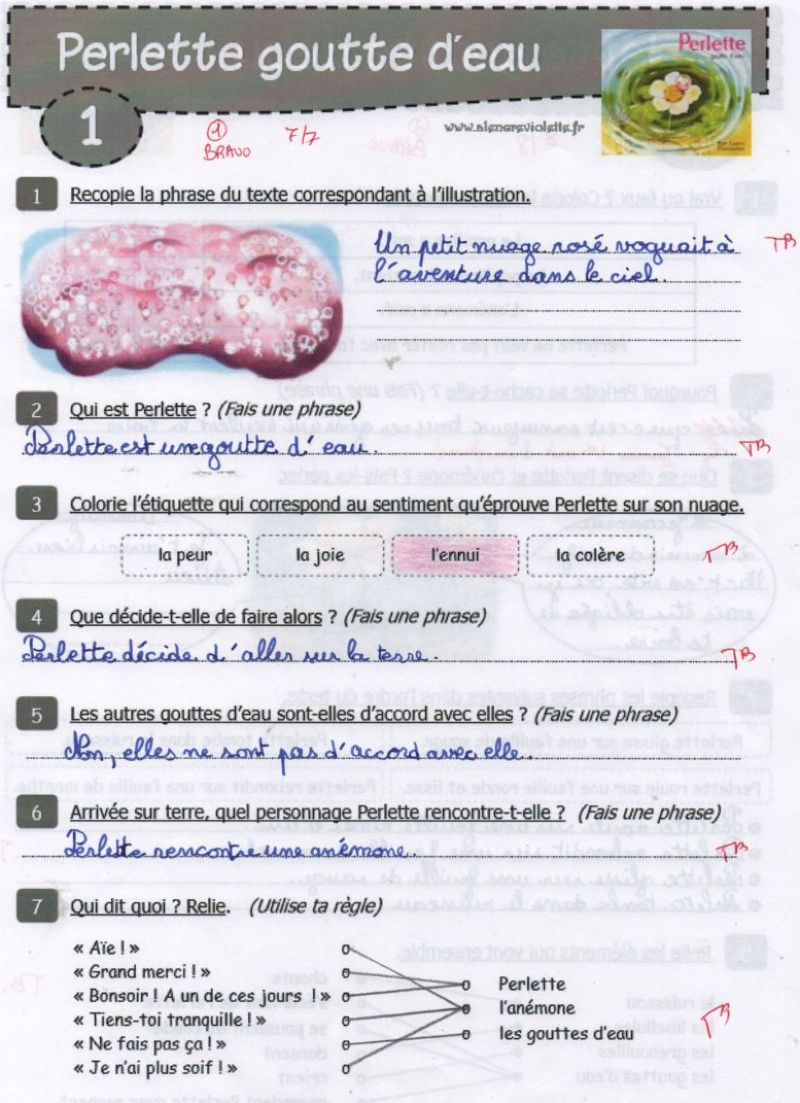 Perlette goutte d'eau
Perlette
goutte d'eau
1
1
BRAVO
7/7
www.alencreviolette.fr
1 Recopie la phrase du texte correspondant à l'illustration.
Un petit nuage rosé voguait à
l'aventure dans le ciel.
TB
2 Qui est Perlette ? (Fais une phrase)
Perlette est une goutte d'eau.
TB
3 Colorie l'étiquette qui correspond au sentiment qu'éprouve Perlette sur son nuage.
la peur la joie l'ennui la colère
TB
4 Que décide-t-elle de faire alors ? (Fais une phrase)
Perlette décide d'aller sur la terre.
TB
5 Les autres gouttes d'eau sont-elles d'accord avec elles ? (Fais une phrase)
Non, elles ne sont pas d'accord avec elle.
6 Arrivée sur terre, quel personnage Perlette rencontre-t-elle ? (Fais une phrase)
Perlette rencontre une anémone.
TB
7 Qui dit quoi ? Relie. (Utilise ta règle)
« Aïe ! »
« Grand merci ! »
« Bonsoir ! A un de ces jours ! »
« Tiens-toi tranquille ! »
« Ne fais pas ça ! »
« Je n'ai plus soif ! »
Perlette
l'anémone
les gouttes d'eau
TB